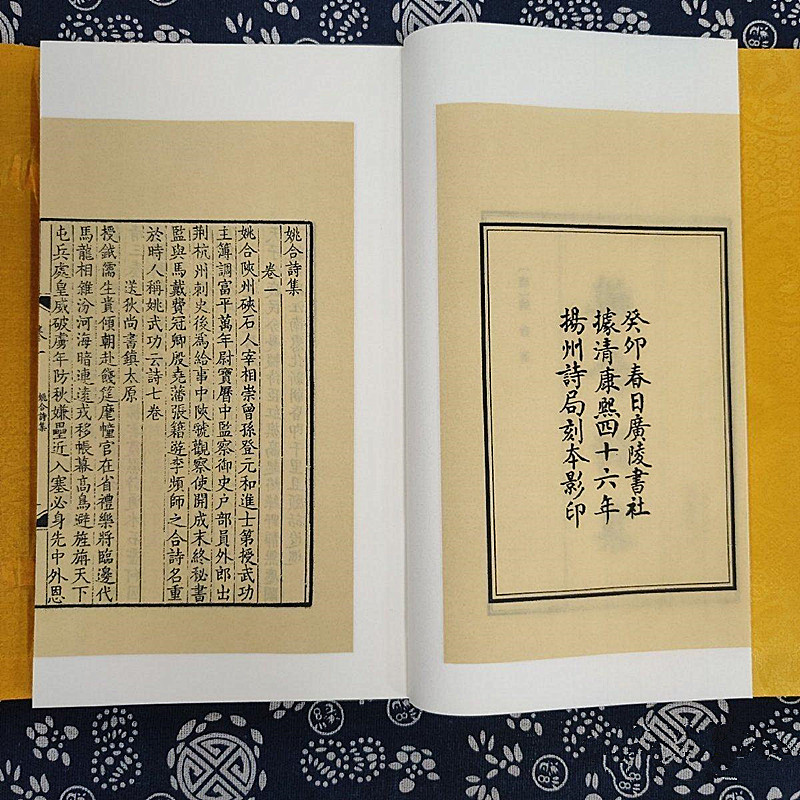 癸卯春日廣陵書社
據清康熙四十六年
揚州詩局刻本影印
姚合詩集
卷一
姚合陝州硤石人宰相崇曾孫登元和進士第授武功
主簿調富平萬年尉寶曆中監察御史户部員外郎出
荆杭州刺史後為給事中陝虢觀察使開成末終秘書
監與馬戴費冠卿殷堯藩張籍遊李頻師之合詩名重
於時人稱姚武功云詩七卷
送狄尚書鎮太原
授鉞儒生貴傾朝赴餞筵麾幢官在省禮樂將臨邊代
馬龍相雜汾河海暗連遠戎移帳幕高鳥避旌旃天下
屯兵處皇威破虜年防秋嫌壘近入塞必身先中外恩
卷一
姚合詩集